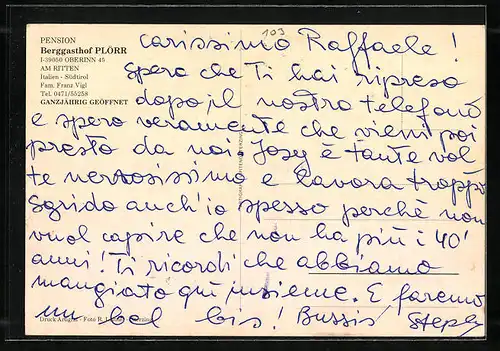 PENSION
Berggasthof PLÖRR
I-39050 OBERINN 45
AM RITTEN
Italien - Südtirol
Fam. Franz Vigl
Tel. 0471/55258
GANZJÄHRIG GEÖFFNET
103
Carissimo Raffaele!
Spero che Ti hai ripreso
dopo il nostro telefono
e spero veramente che vieni poi
presto da noi. Josy è tante vol
te nervosissimo e lavora troppo
Sgrido anch'io spesso perchè non
vuol capire che non ha più i 40'
anni! Ti ricordi che abbiamo
mangiato qui insieme. E faremo
un bel bis! Bussis Steph
Druck - Foto R.